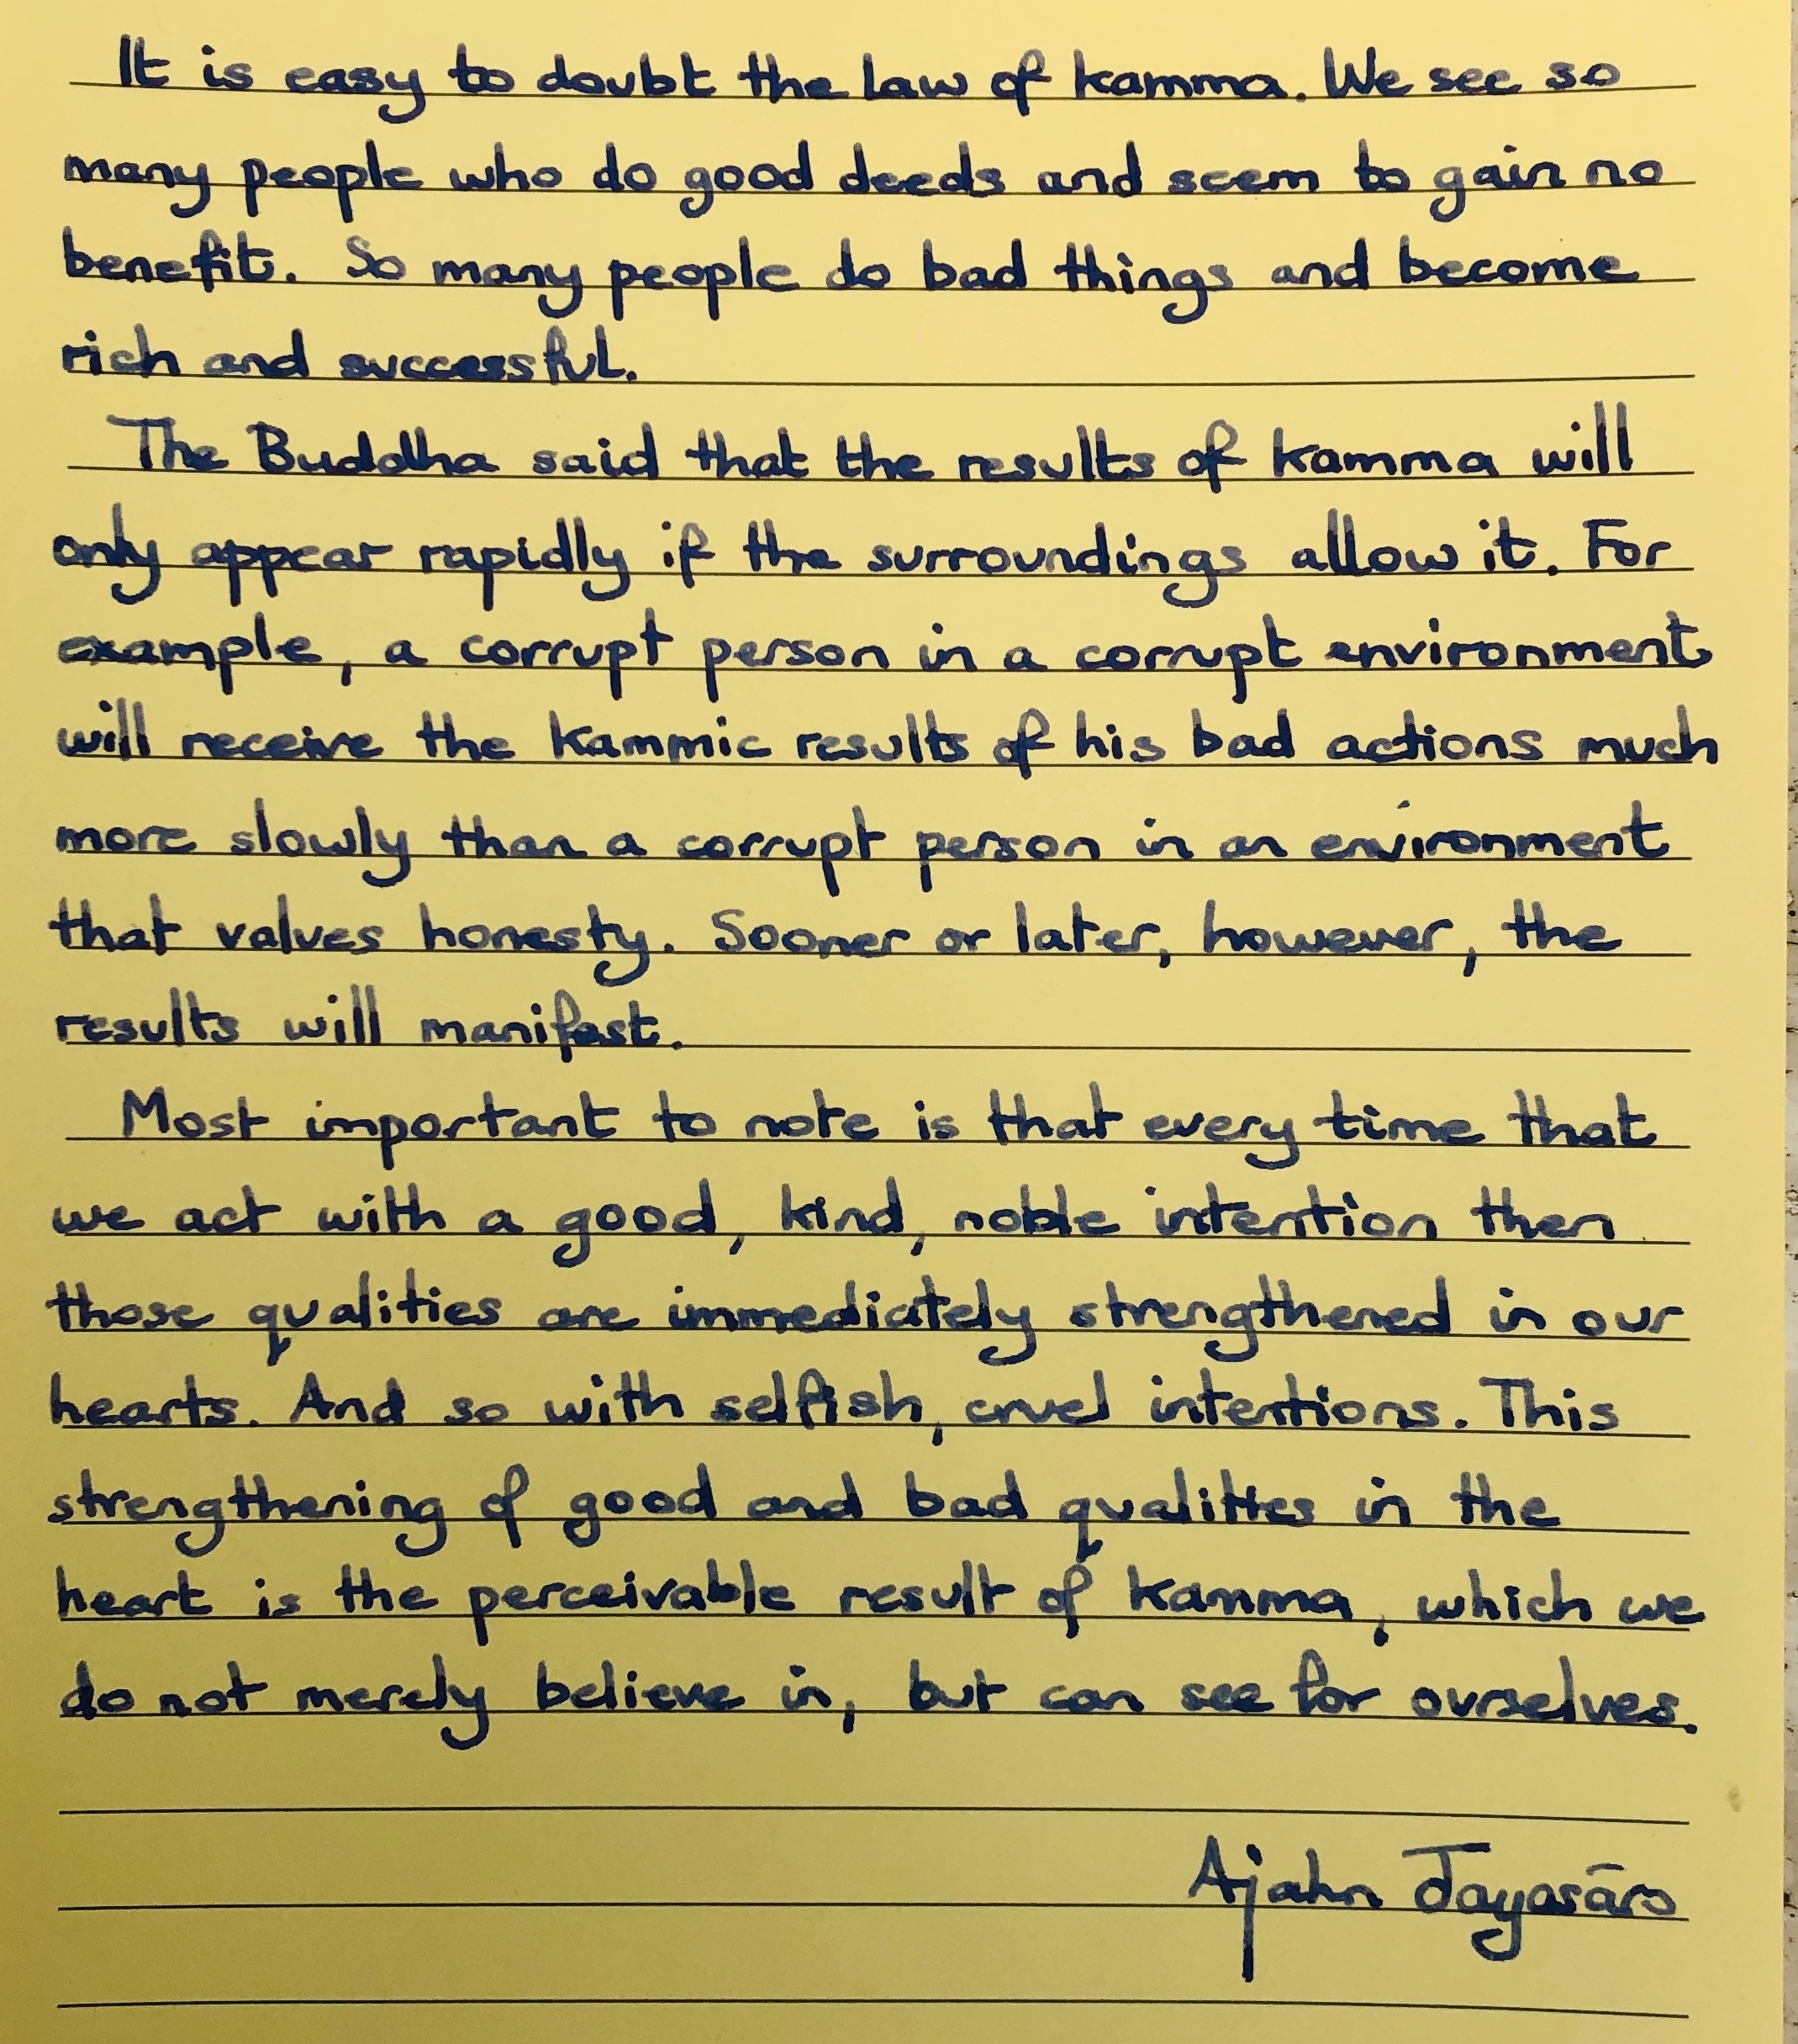 It is easy to doubt the law of kamma. We see so
many people who do good deeds and seem to gain no
benefit. So many people do bad things and become
rich and successful.
The Buddha said that the results of kamma will
only appear rapidly if the surroundings allow it. For
example, a corrupt person in a corrupt environment
will receive the kammic results of his bad actions much
more slowly than a corrupt person in an environment
that values honesty. Sooner or later, however, the
results will manifest.
Most important to note is that every time that
we act with a good, kind, noble intention then
those qualities are immediately strengthened in our
hearts. And so with selfish, cruel intentions. This
strengthening of good and bad qualities in the
heart is the perceivable result of kamma, which we
do not merely believe in, but can see for ourselves.
Ajahn Jayasāro